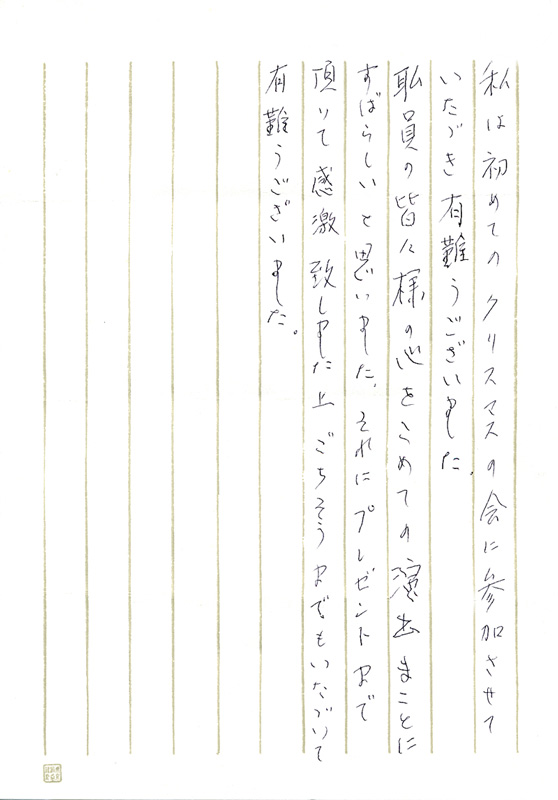 私は初めてのクリスマスの会に参加させて
いたづき有難うございました。
職員の皆々様の心をこめての演出まことに
すばらしいと思いました。それにプレゼントまで
頂いて感激致しました上ごちそうまでもいたづいて
有難うございました。